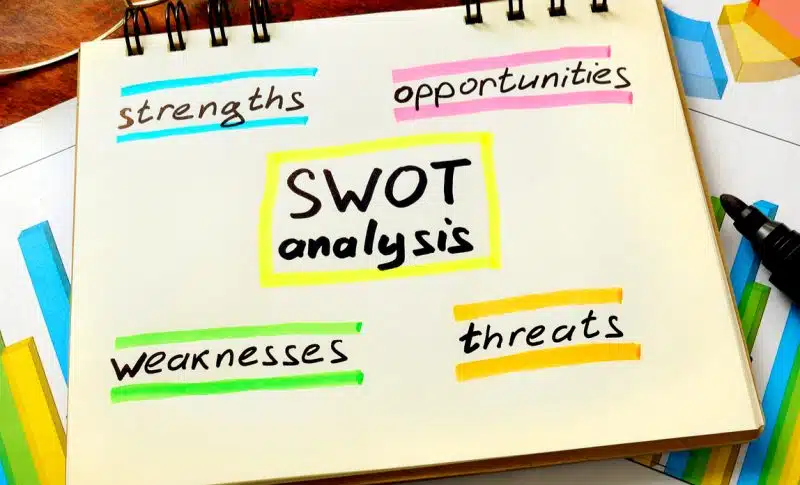 strengths
opportunities
SWOT
analysis
weaknesses
threats